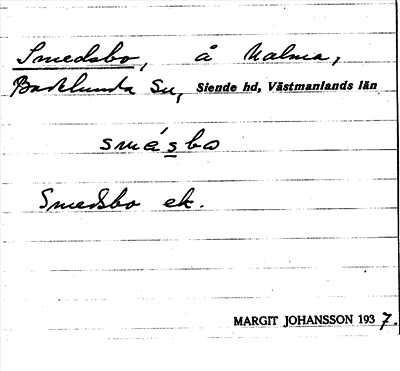 Smedsbo, å Malma,
Badelunda Sn, Siende hd, Västmanlands län
smásbo
Smedsbo ek.
MARGIT JOHANSSON 1937.